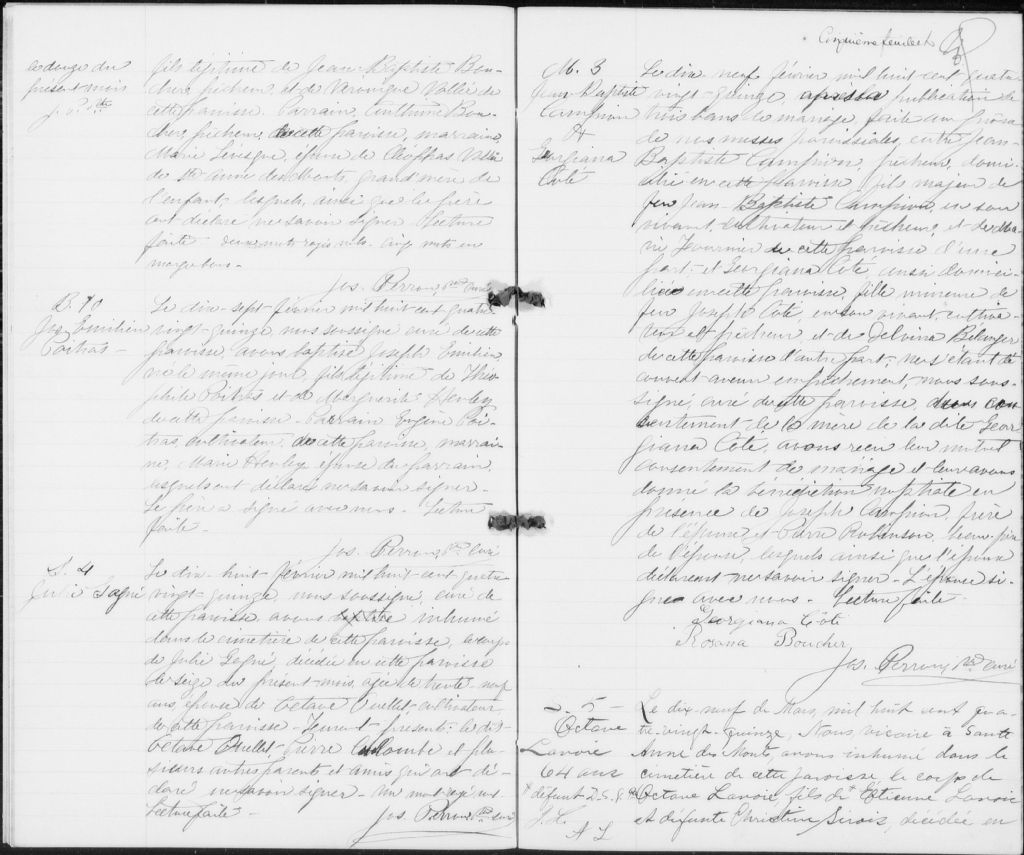 le douze du
présent mois
fils légitime de Jean-Baptiste Bou-
cher, pêcheur, et de Véronique Vallée de
cette paroisse. Parrain,
cher, pêcheur, de cette paroisse, marraine
Marie Lévesque, épouse de Cléophas Vallée
de Ste Anne des Monts, grand'mère de
l'enfant, lesquels, ainsi que le père
ont déclaré ne savoir signer. Lecture
faite. deux mots rayés nuls. Cinq mots en
marge bons.
Jos. Perron, Ptre Curé
B. 10
Jos. Émilien
Poitras
Le dix-sept février mil huit cent quatre
vingt-quinze, nous soussigné curé de cette
paroisse, avons baptisé Joseph Émilien
né le même jour, fils légitime de Théo-
phile Poitras et de Marguerite Henley
de cette paroisse. Parrain Eugène Poi-
tras, cultivateur, de cette paroisse, marrai-
ne, Marie Henley, épouse du parrain,
lesquels ont déclaré ne savoir signer.
Le père a signé avec nous. Lecture
faite.
Jos. Perron, Ptre Curé
S. 4
Julie Gagné
Le dix-huit février mil huit cent quatre
vingt-quinze, nous soussigné, curé de
cette paroisse avons inhumé
dans le cimetière de cette paroisse, le corps
de Julie Gagné, décédée en cette paroisse
le seize du présent mois, agée de trente-neuf
ans, épouse de Octave Ouellet cultivateur
de cette paroisse. Furent présents: le dit
Octave Ouellet, Pierre Lallombe et plu-
sieurs autres parents et amis qui ont dé-
claré ne savoir signer. Un mot rayé nul.
Lecture faite.
Jos. Perron Ptre curé
Cinquième feuillet
M. 3
Jean-Baptiste
Campion
&
Georgiana
Coté
Le dix-neuf février mil huit cent quatre
vingt-quinze, après la publication de
trois bans de mariage, faite au prône
de nos messes paroissiales, entre Jean-
Baptiste Campion, pêcheur, domi-
cilié en cette paroisse, fils majeur de
feu Jean-Baptiste Campion, en son
vivant, cultivateur et pêcheur, et de Ma-
rie Fournier de cette paroisse d'une
part; et Georgiana Coté, aussi domici-
liée en cette paroisse, fille mineure de
feu Joseph Coté, en son vivant cultiva-
teur et pêcheur, et de Delvina Bélanger
de cette paroisse d'autre part; ne s'étant dé-
couvert aucun empêchement, nous sous-
signé, curé de cette paroisse, du con
sentement de la mère de la dite Geor
giana Coté, avons reçu leur mutuel
consentement de mariage et leur avons
donné la bénédiction nuptiale en
présence de Joseph Campion, frère
de l'époux, et Pierre Robinson, beau-père
de l'épouse, lesquels ainsi que l'époux
déclarent ne savoir signer. L'épouse si-
gne avec nous. Lecture faite.
Georgiana Côté
Rosana Boucher
Jos. Perron, Ptre Curé
S. 5
Octave
Lavoie
64 ans
défunt
J. L.
A L
Le dix-neuf de Mars, mil huit cent qua-
tre-vingt-quinze, Nous, vicaire à Sante
Anne des Monts, avons inhumé dans le
cimetière de cette paroisse, le corps de
Octave Lavoie, fils de Etienne Lavoie
et défunte Christine Sirois, décédée en